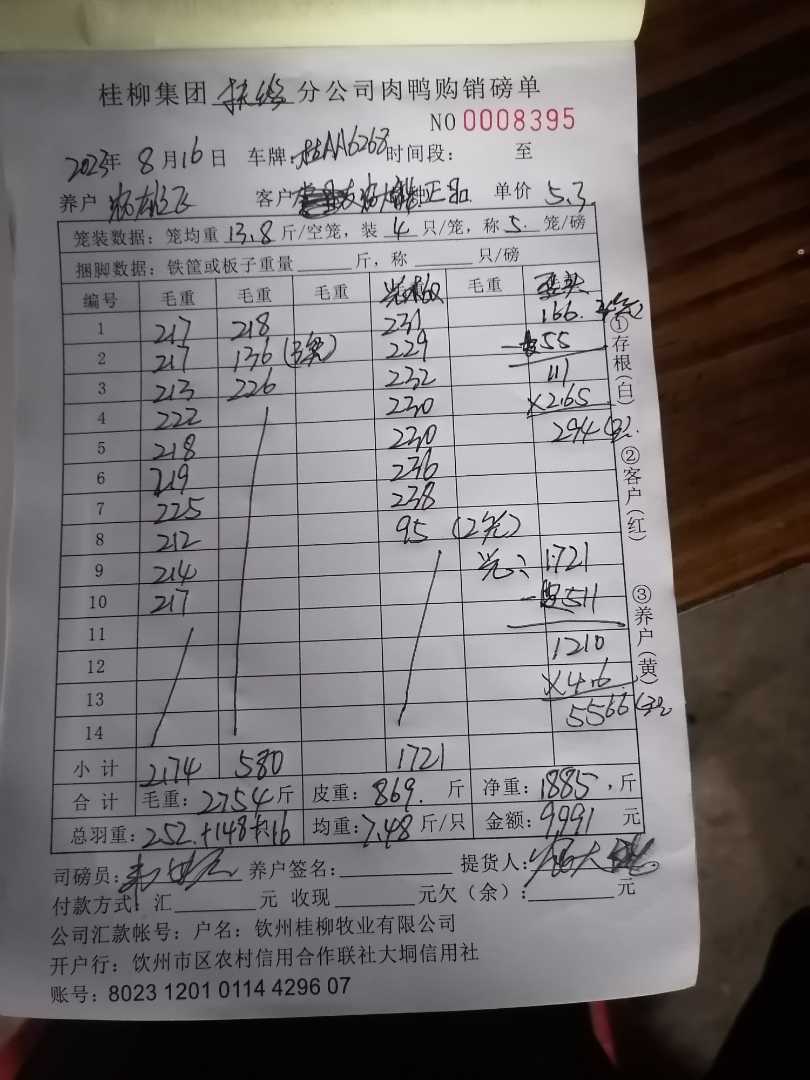 桂柳集团 分公司肉鸭购销磅单
NO 0008395
2023年 8月16日 车牌:桂AA6268 时间段: 至
养户 客户 正品 单价 5.3
笼装数据:笼均重 13.8 斤/空笼,装 4 只/笼,称 5 笼/磅
捆脚数据:铁筐或板子重量 斤,称 只/磅
编号 毛重 毛重 毛重 毛重
1 217 218 231 166
2 217 136 229 55
3 213 226 232 111
4 222 230 ×2.65
5 218 230 294
6 219 236
7 225 238
8 212 95
9 214 1721
10 217 511
11 1210
12 ×4.6
13 5566
14
小计 2174 580 1721
合计 毛重:2754斤 皮重:869. 斤 净重:1885,斤
总羽重:252.+148 16 均重:7.48斤/只 金额:9991 元
司磅员: 养户签名: 提货人:
付款方式:汇 元 收现 元欠(余): 元
公司汇款帐号:户名:钦州桂柳牧业有限公司
开户行:饮州市区农村信用合作联社大垌信用社
账号:8023 1201 0114 4296 07
①存根(白) ②客户(红) ③养户(黄)